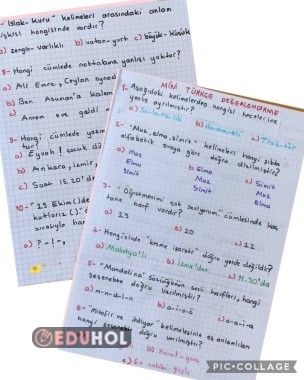 "Islak-Kuru" kelimeleri arasındaki anlam
ilişkisi hangisinde vardır?
a) zengin-varlıklı b) vatan-yurt c) büyük-küçük
8- Hangi cümlede noktalama yanlışı yoktur?
a) Ali Emre, Ceylan oynadı
b) Ben Asunan'a kalem
c) Annem eve geldi
9- Hangi cümlede yazım
a) Eyvah! çocuk
b) Ankara, İzmir,
c) Saat 15.20'de
10- "29 Ekim
kutlarız
sırasıyla
a) ? - ! - ,
MİNİ TÜRKÇE DEĞERLENDİRME
1- Aşağıdaki kelimelerden hangisi hecelerine
yanlış ayrılmıştır?
2- "Muz, elma, simit" kelimeleri hangi şıkta
alfabetik sıraya göre doğru dizilmiştir?
a) Muz b) Elma c) Simit
Elma Muz Muz
Simit Simit Elma
3- "Öğretmenimi çok seviyorum." cümlesinde kaç
tane harf vardır?
a) 23 b) 20 c) 22
4- Hangisinde "kesme işareti" doğru yerde değildir?
a) Malatya'lı b) İzmir'den c) 11.30'da
5- "Mandalina" sözcüğünün sesli harfleri, hangi
seçenekte doğru verilmiştir?
a) m-n-d-l-n b) a-i-a-a c) a-a-i-a
6- "Misafir ve ihtiyar" kelimelerinin eş anlamlıları
hangi seçenekte doğru verilmiştir?
b) konuk-genç
c) Ev sahibi-yaşlı
EDUHOL
PIC•COLLAGE